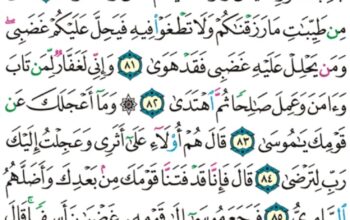 مِن طَيِّبَٰتِ مَا رَزَقْنَٰكُمْ وَلَا تَطْغَوْا۟ فِيهِ فَيَحِلَّ عَلَيْكُمْ غَضَبِى ۖ
وَمَن يَحْلِلْ عَلَيْهِ غَضَبِى فَقَدْ هَوَىٰ ٨١ وَإِنِّى لَغَفَّارٌ لِّمَن تَابَ
وَءَامَنَ وَعَمِلَ صَٰلِحًا ثُمَّ ٱهْتَدَىٰ ٨٢ ۞ وَمَآ أَعْجَلَكَ عَن
قَوْمِكَ يَٰمُوسَىٰ ٨٣ قَالَ هُمْ أُو۟لَآءِ عَلَىٰٓ أَثَرِى وَعَجِلْتُ إِلَيْكَ
رَبِّ لِتَرْضَىٰ ٨٤ قَالَ فَإِنَّا قَدْ فَتَنَّا قَوْمَكَ مِنۢ بَعْدِكَ وَأَضَلَّهُمُ
ٱلسَّامِرِىُّ ٨٥ فَرَجَعَ مُوسَىٰٓ إِلَىٰ قَوْمِهِۦ غَضْبَٰنَ أَسِفًا ۚ قَالَ